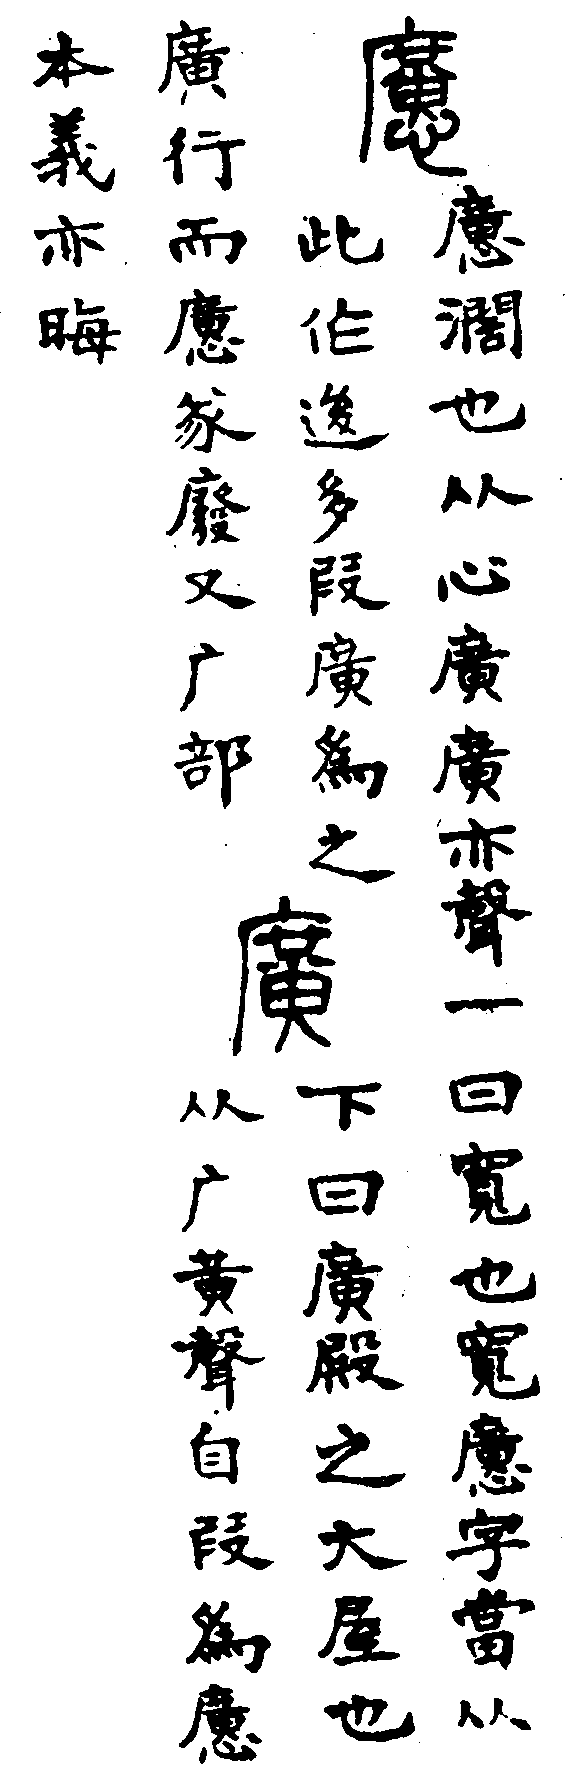 懬
懬濶也从心廣廣亦聲一曰寬也寬懬字當从
此作後多叚廣爲之
廣行而懬㒸廢又广部
廣
下曰廣殿之大屋也
从广黄聲自叚爲懬
本義亦晦